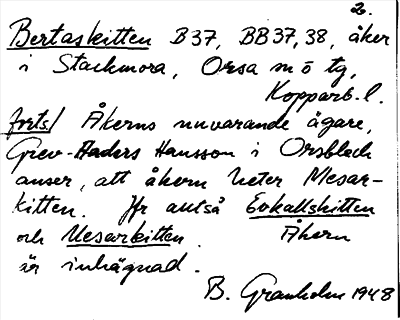 2.
Bertaskitten B37, BB37,38, åker
i Stackmora, Orsa m ö tg,
Kopparb. l.
forts/ Åkerns nuvarande ägare,
Grev-Anders Hansson i Orsbleck
anser, att åkern heter Mesar-
kitten. Jfr också Enkallskitten
och Mesarkitten. Åkern
är inhägnad.
B. Granholm 1948